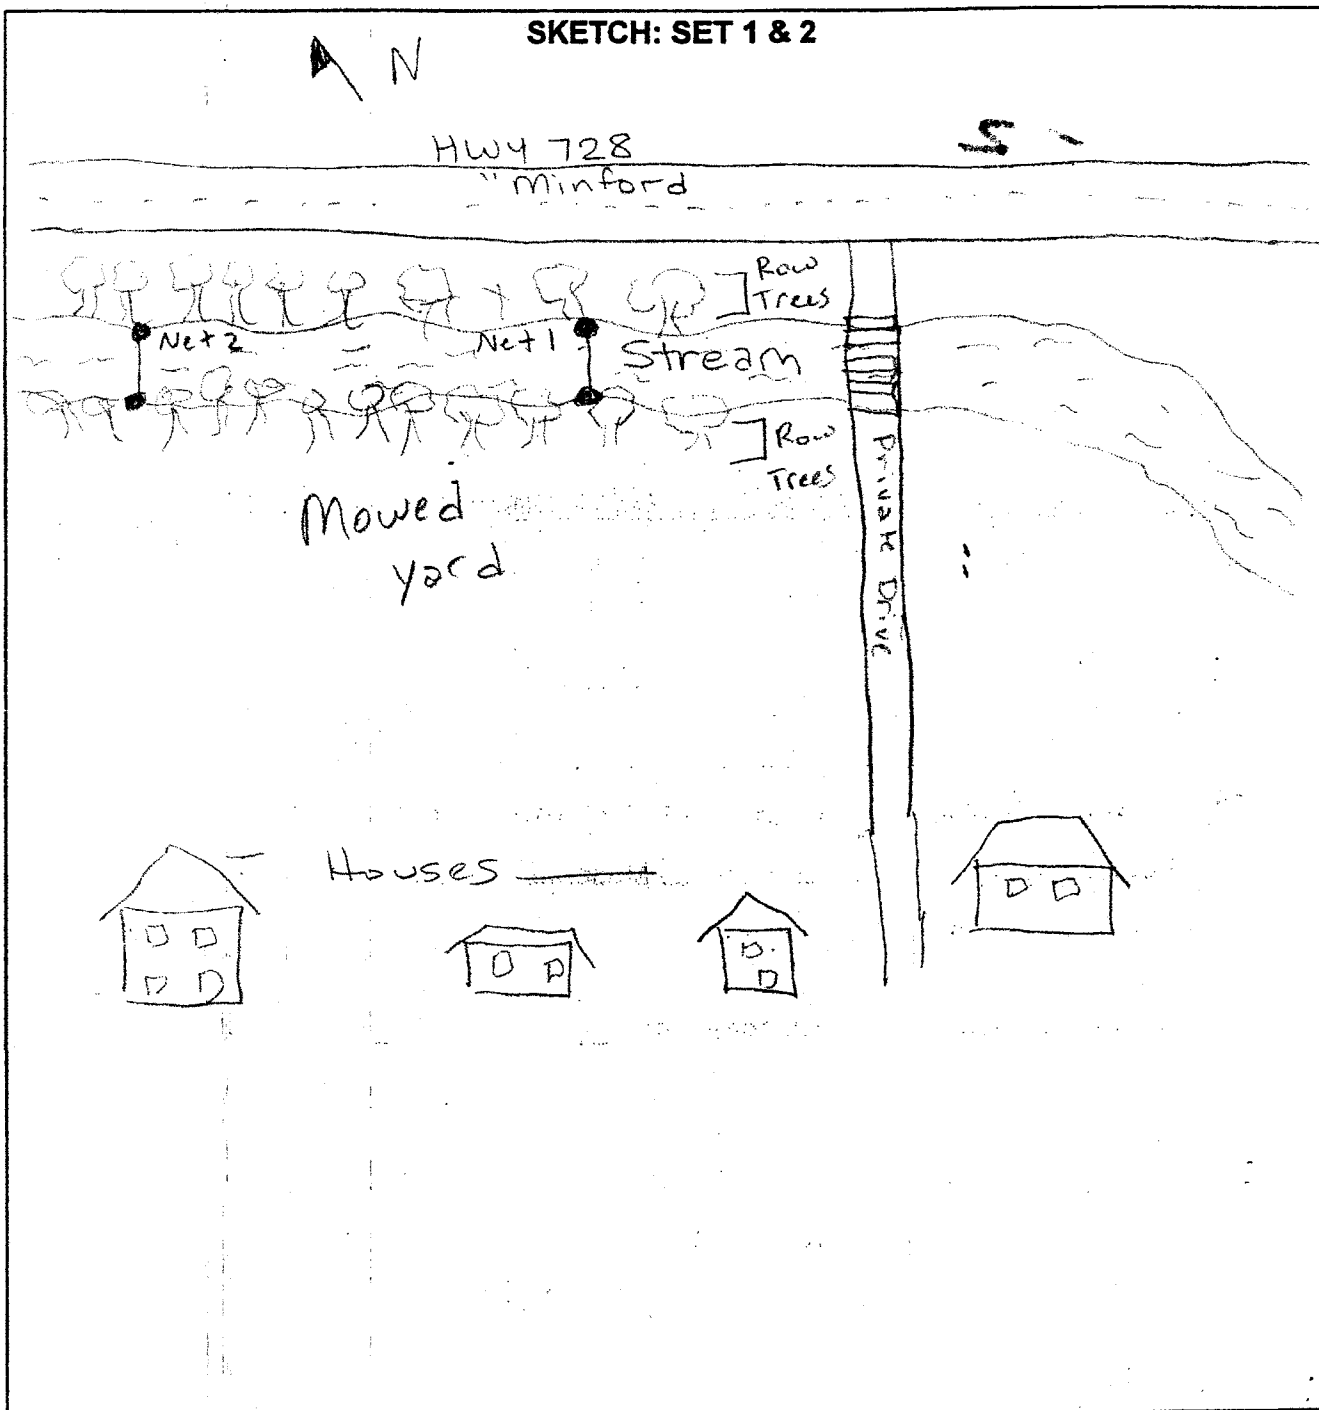 SKETCH: SET 1 & 2
N
HWY 728
"Minford
Row
Trees
Net 2
Net 1
Stream
Row
Trees
Private Drive
Mowed
yard
Houses